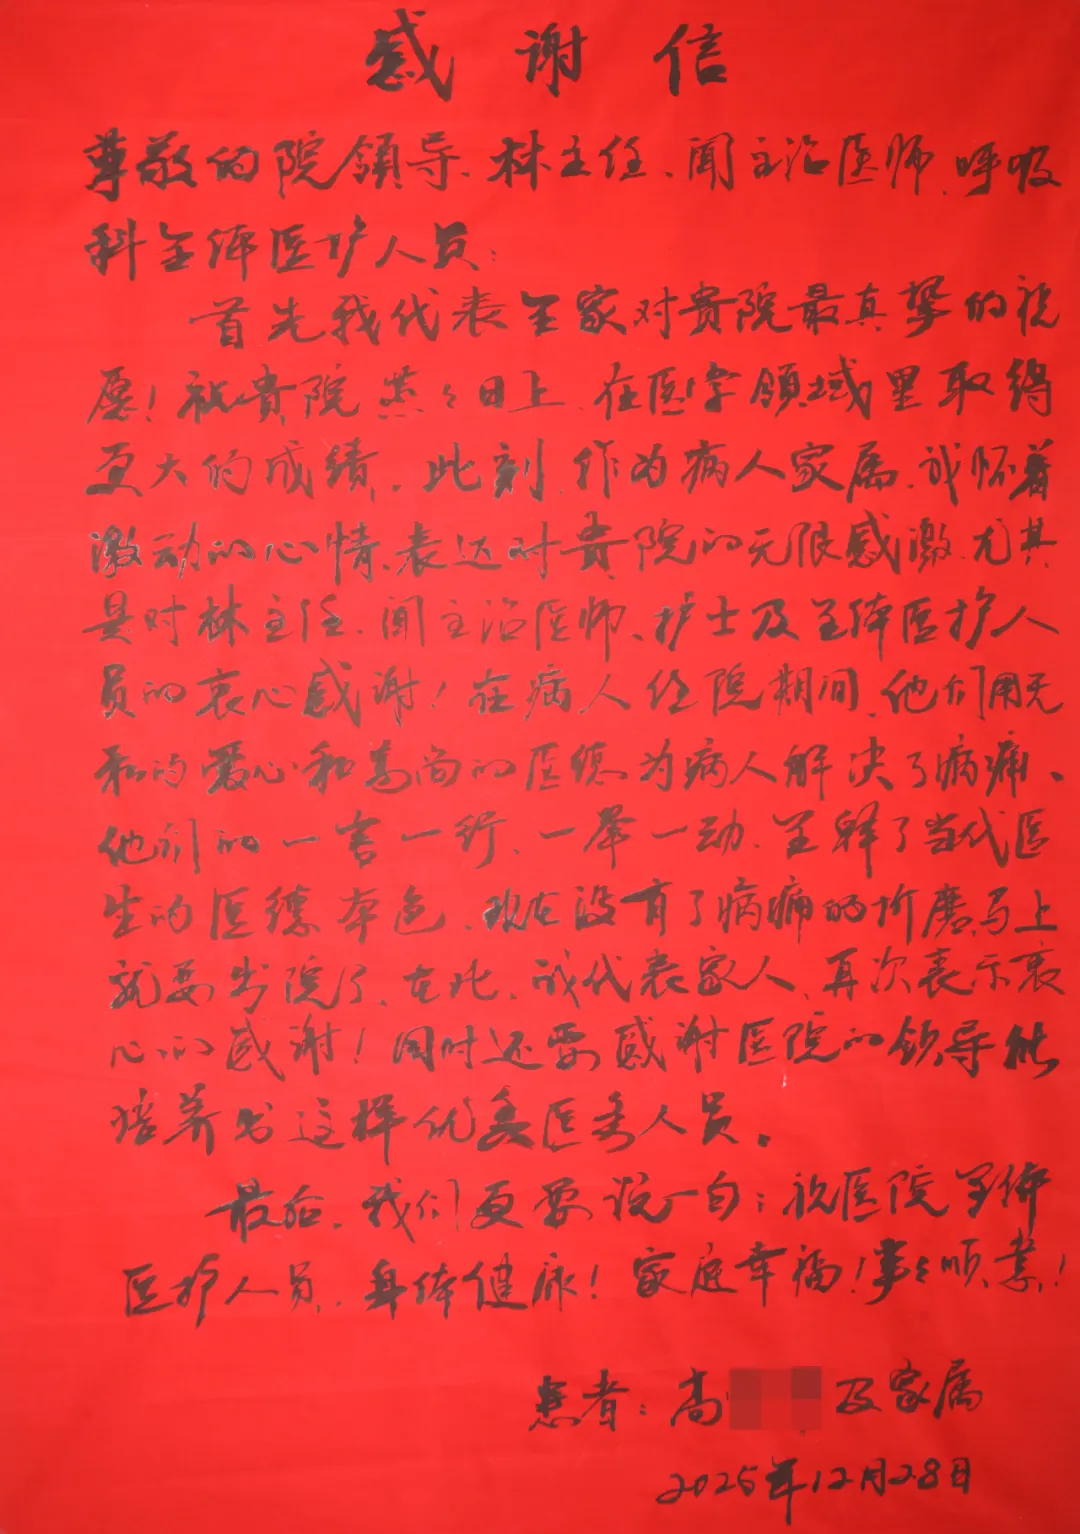 感谢信
尊敬的院領导、林主任、闻主治医师、呼吸
科全体医护人员：
首先我代表全家对贵院最真挚的祝
愿！祝贵院蒸々日上、在医学領域里取得
更大的成绩。此刻、作为病人家属、我怀着
激动的心情、表达对贵院的无限感激、尤其
是对林主任、闻主治医师、护士及全体医护人
员的衷心感谢！在病人住院期间、他们用无
私的爱心和高尚的医德为病人解决了病痛、
他们的一言一行、一举一动、全释了当代医
生的医德本色、现在没有了病痛的折磨、马上
就要出院了、在此、我代表家人、再次表示衷
心的感谢！同时还要感谢医院的领导能
培养出这样优美医务人员。
最后、我们更要说一句：祝医院全体
医护人员、身体健康！家庭幸福！事々顺意！
患者：高 及家属
2025年12月28日